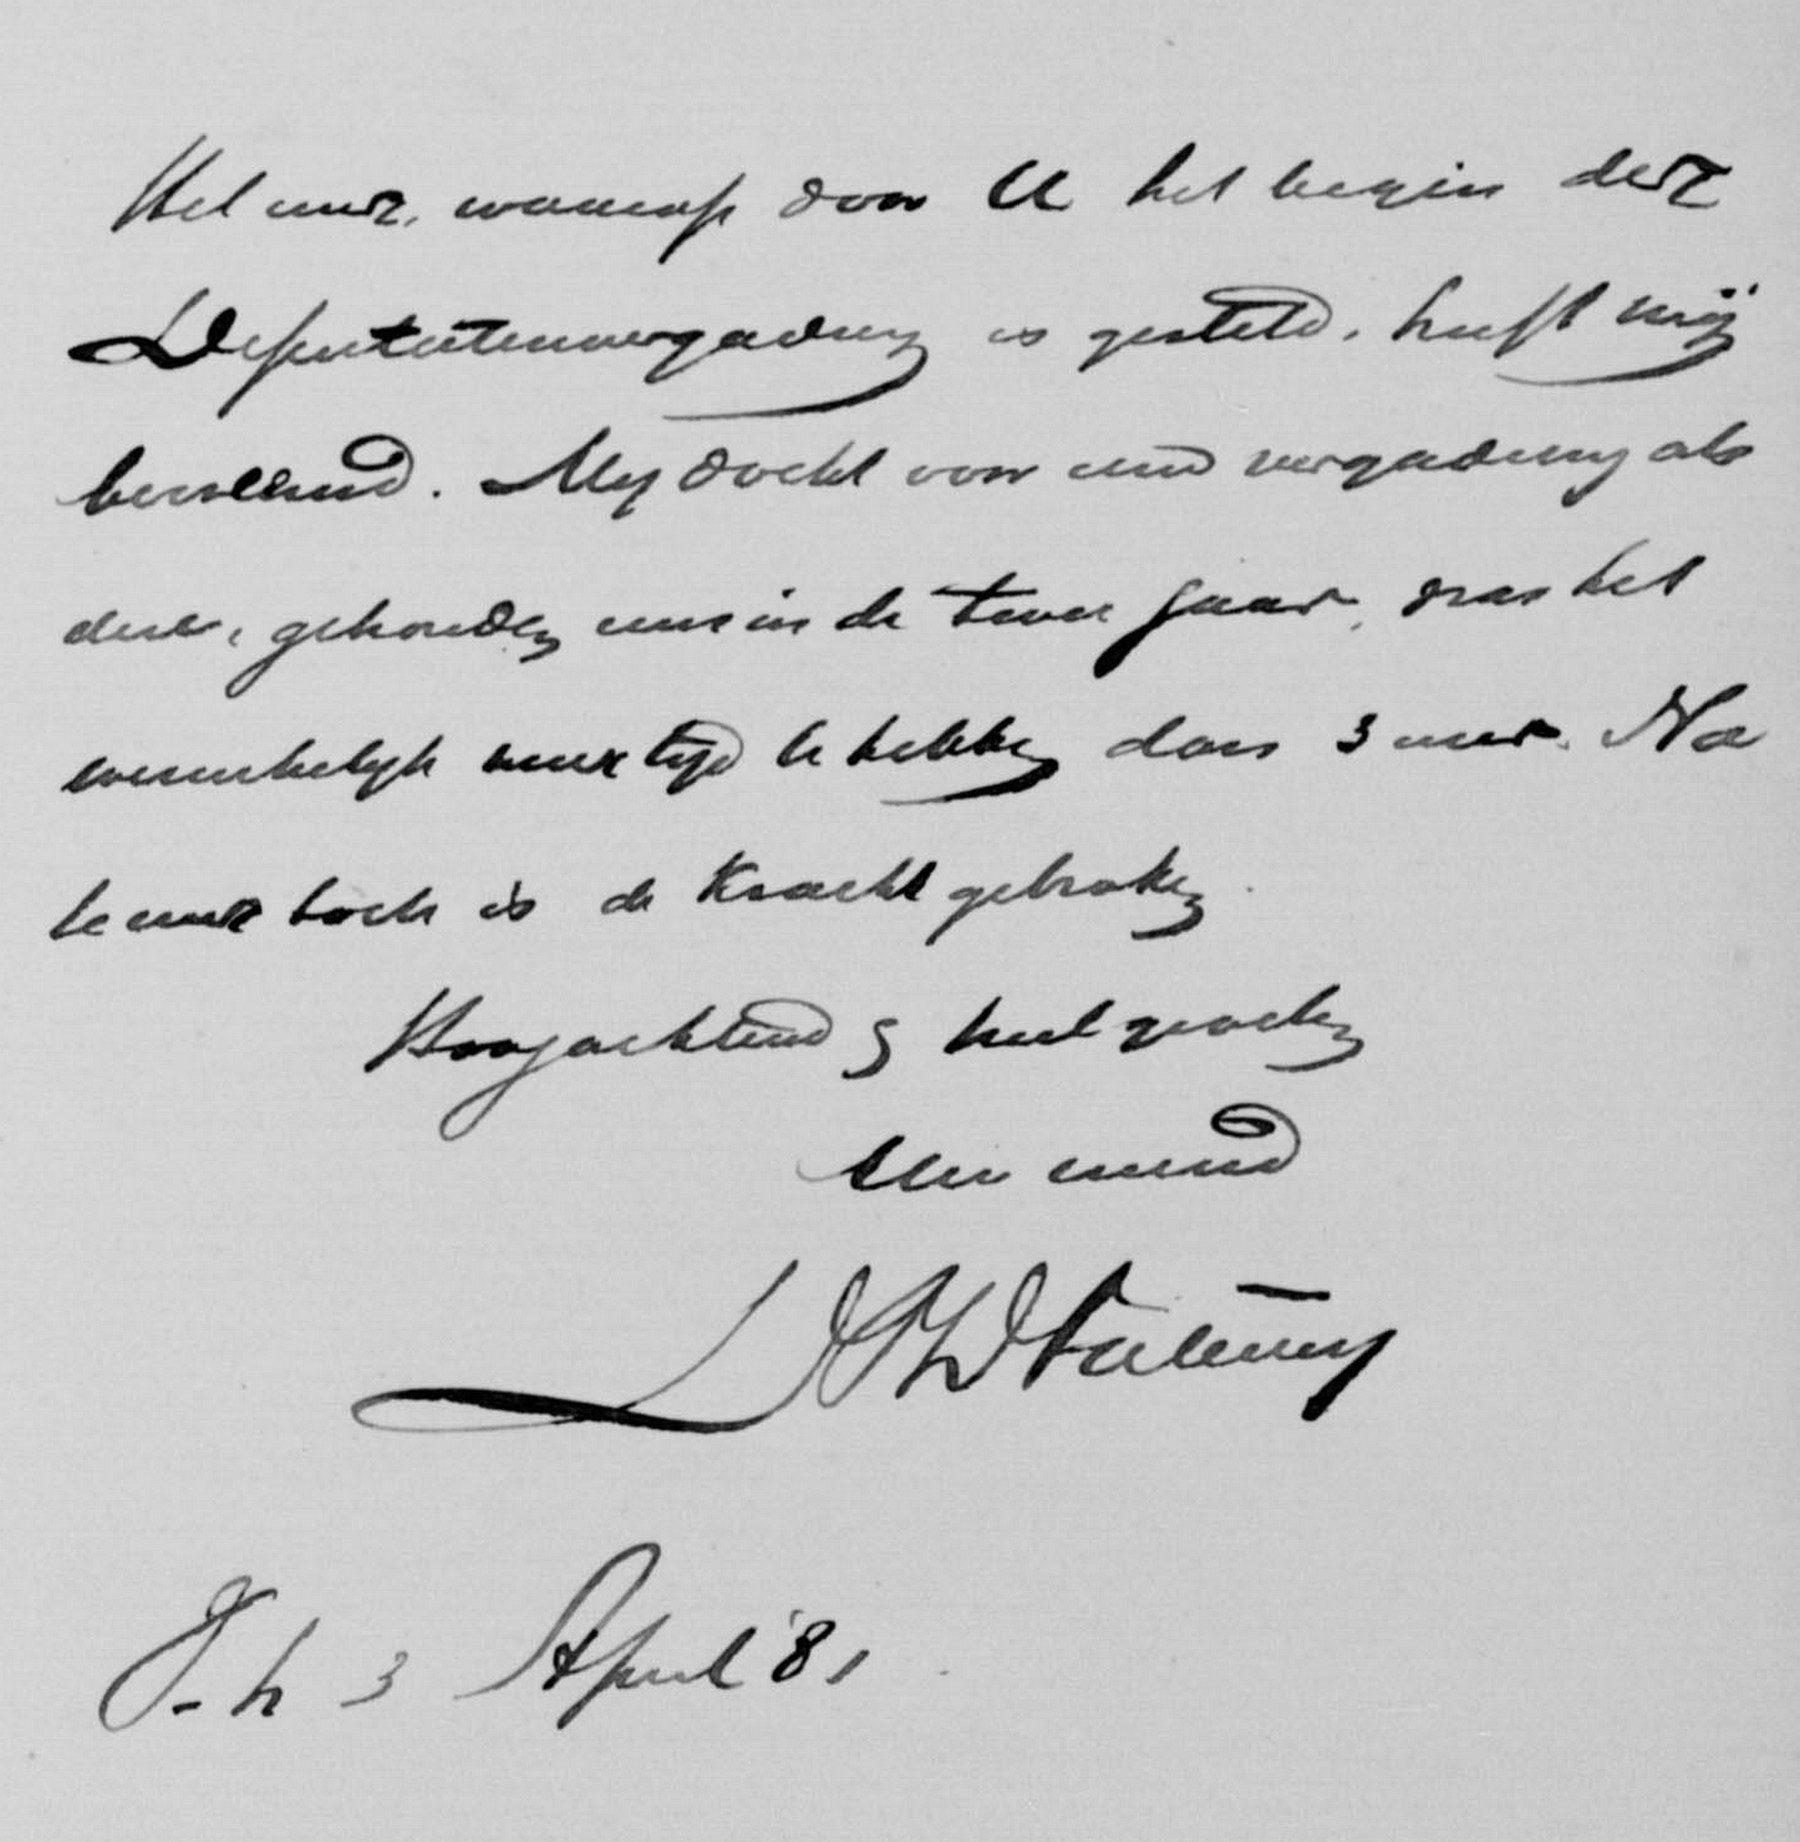 Het uur, waarop door U het begin der
Deputatenvergadering is gesteld, heeft mij
bevreemd. My docht voor eene vergadering als
deze, gehouden eens in de twee jaar, was het
wenschelyk meer tijd te hebben dan 3 uur. Na
te uur toch is de kracht gebroken.
Hoogachtend & heil gevende
Uw vriend
3 April '81